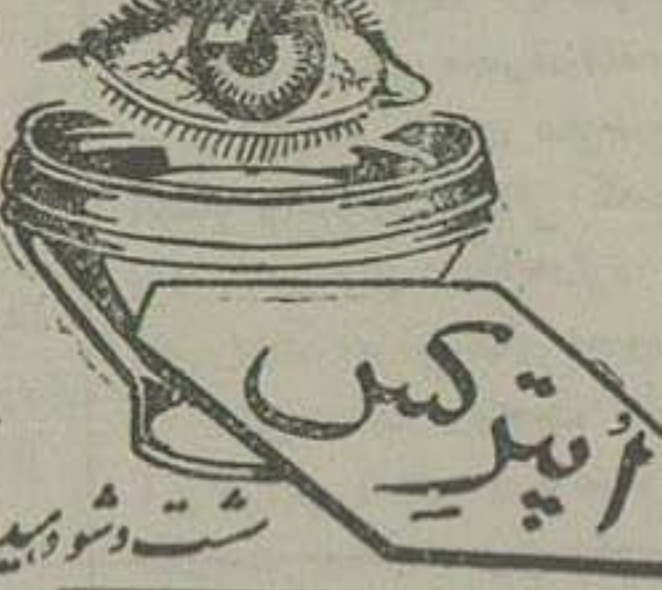 اُپترِکس
شست و شو دهید